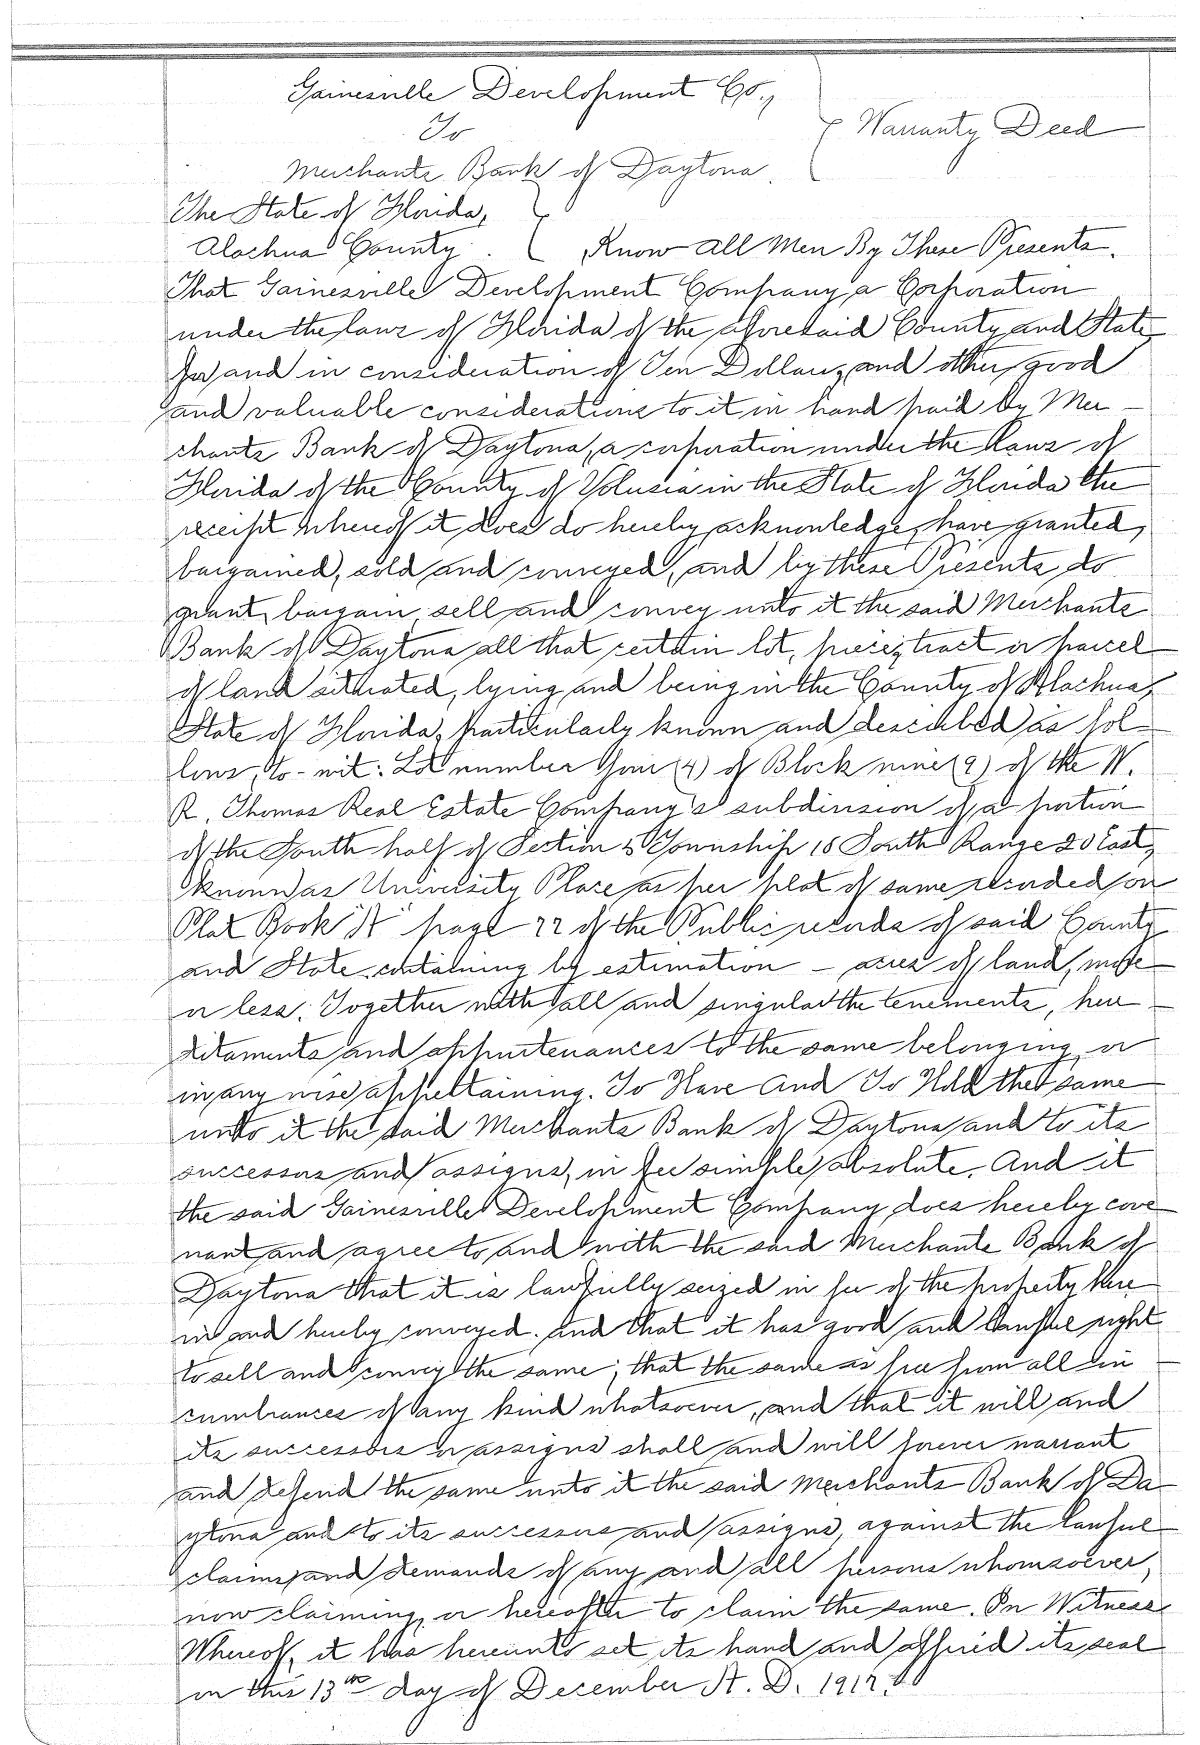 Gainesville Development Co.,
To
Warranty Deed
Merchants Bank of Daytona.
The State of Florida,
Alachua County. Know All Men By These Presents.
That Gainesville Development Company a Corporation
under the laws of Florida of the aforesaid County and State
for and in consideration of Ten Dollars, and other good
and valuable considerations to it in hand paid by Mer-
chants Bank of Daytona, a corporation under the laws of
Florida of the County of Volusia in the State of Florida the
receipt whereof it does do hereby acknowledge, have granted,
bargained, sold and conveyed, and by these Presents do
grant, bargain, sell and convey unto it the said Merchants
Bank of Daytona all that certain lot, piece, tract or parcel
of land situated, lying and being in the County of Alachua,
State of Florida, particularly known and described as fol-
lows, to-wit: Lot number four (4) of Block nine (9) of the W.
R. Thomas Real Estate Company's subdivision of a portion
of the South half of Section 5 Township 10 South Range 20 East,
known as University Place as per plat of same recorded on
Plat Book "A" page 22 of the Public records of said County
and State, containing by estimation - acres of land, more
or less. Together with all and singular the tenements, here-
ditaments and appurtenances to the same belonging, or
in any wise appertaining. To Have And To Hold the same
unto it the said Merchants Bank of Daytona and to its
successors and assigns, in fee simple absolute. And it
the said Gainesville Development Company does hereby cove-
nant and agree to and with the said Merchants Bank of
Daytona that it is lawfully seized in fee of the property here-
in and hereby conveyed. and that it has good and lawful right
to sell and convey the same; that the same is free from all in-
cumbrances of any kind whatsoever, and that it will and
its successors or assigns shall and will forever warrant
and defend the same unto it the said Merchants Bank of Da-
ytona and to its successors and assigns, against the lawful
claims and demands of any and all persons whomsoever,
now claiming, or hereafter to claim the same. In Witness
Whereof, it has hereunto set its hand and affixed its seal
on this 13th day of December A. D. 1917.